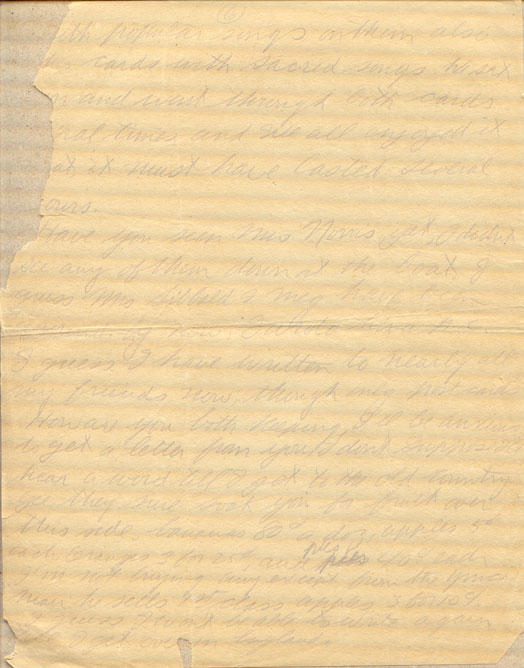 6
with popular songs on them also
cards with sacred songs he sat
and went through both cards
times and we all enjoyed it
it must have lasted several
hours.
Have you seen Mrs Norris yet, I didn't
see any of them down at the boat I
guess Mrs & Meg have been
now.
I guess I have written to nearly all
my friends now, though only post cards
How are you both keeping, I'll be anxious
to get a letter from you I don't suppose I'll
hear a word till I get to the old country
they sure soak you for fruit over
this side, bananas 80¢ a doz, apples 5¢
each oranges 3 for 25¢, and pies each
I'm not buying any except from the
man he sells 1st class apples 3 for 10¢
guess I won't be able to write again
till I get over in England.